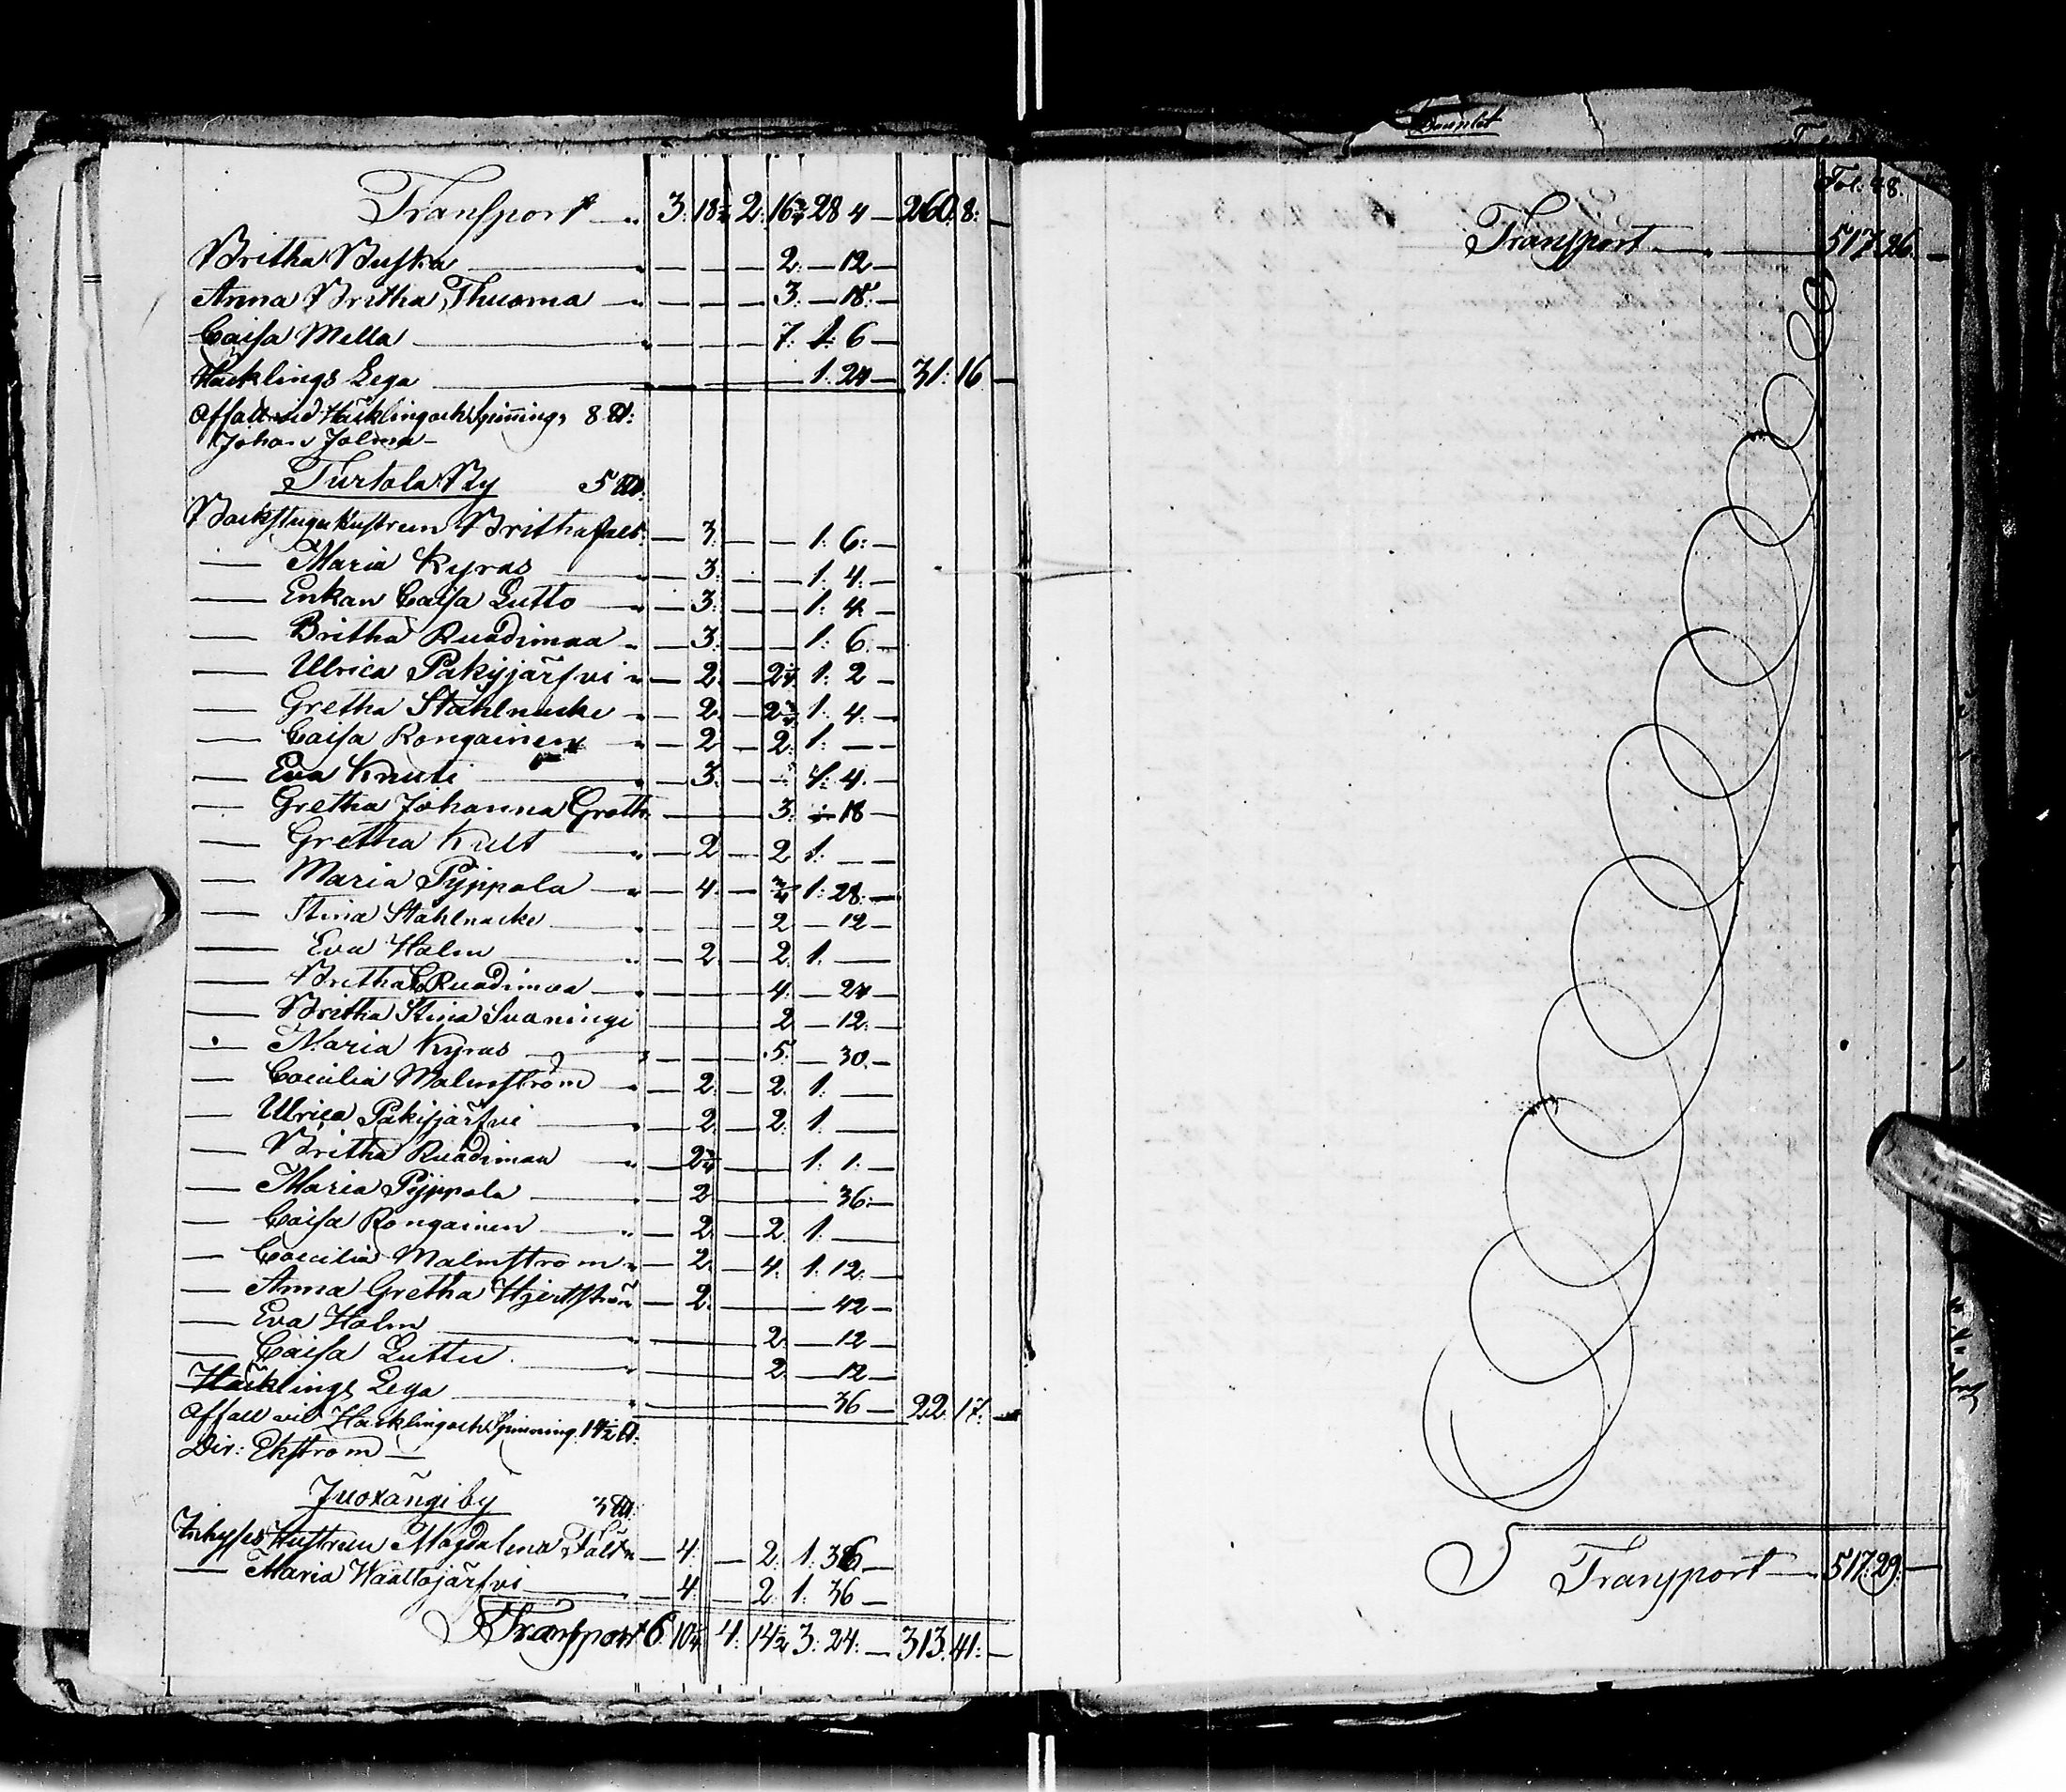 Transport — 3. 18½ 2. 16¾ 28 4 — 260. 8. —
Britha Buska — — — — 2. — 12 —
Anna Britha Thuoma — — — — 3. — 18. —
Caisa Mella — — — — 7. 1. 6 —
Häcklings Lega — 1. 24 — 31. 16 —
Affall vid Häckling och Spinning 8 ℔:
Johan Jolma —
Turtola By 5 ℔:
Backstugu Hustrun Britha — 3. — — 1. 6. —
— Maria Kyrös — 3. — — 1. 4. —
— Enkan Caisa Lutto — 3. — — 1. 4. —
— Britha Ruadimaa — 3. — — 1. 6. —
— Ulrica Pakijärfvi — 2. — 2¼ 1. 2 —
— Gretha Stahlnacke — 2. — 2¾ 1. 4. —
— Caisa Rongainen — 2 — 2. 1. — —
— Eva Knuti — 3. — — 1. 4. —
— Gretha Johanna Groth — 3. — 18 —
— Gretha Kult — 2 — 2 1. — —
— Maria Pijppola — 4. — ¾ 1. 28. —
— Stina Stahlnacke — 2 — 12 —
— Eva Halm — 2. — 2. 1. —
— Britha C Ruadimaa — 4. — 24 —
— Britha Stina Svaningi — 2 — 12. —
— Maria Kyrös — 5. — 30. —
— Cæcilia Malmström — 2. — 2. 1. —
— Ulrica Pakijärfvi — 2. — 2. 1. —
— Britha Ruadimaa — 2¾ — — 1. 1. —
— Maria Pijppola — 2 — 36. —
— Caisa Rongainen — 2. — 2. 1. —
— Cæcilia Malmström — 2. — 4. 1. 12. —
— Anna Gretha Hjertström — 2. — 42 —
— Eva Halm — 2. — 12 —
— Caisa Luttu — 2. — 12 —
Häcklings Lega — 36 — 22. 17. —
Affall vid Häckling och Spinning 14½ ℔:
Dir: Ekström —
Juoxängi by 3 ℔:
Inhyses Hustrun Magdalena Fält — 4. — 2. 1. 36 —
— Maria Waattojärfvi — 4. — 2. 1. 36 —
Transport 6. 10¼ 4. 14½ 3. 24. — 313. 41. —
Fol: 48.
Transport — 517. 26. —
Transport — 517. 29. —